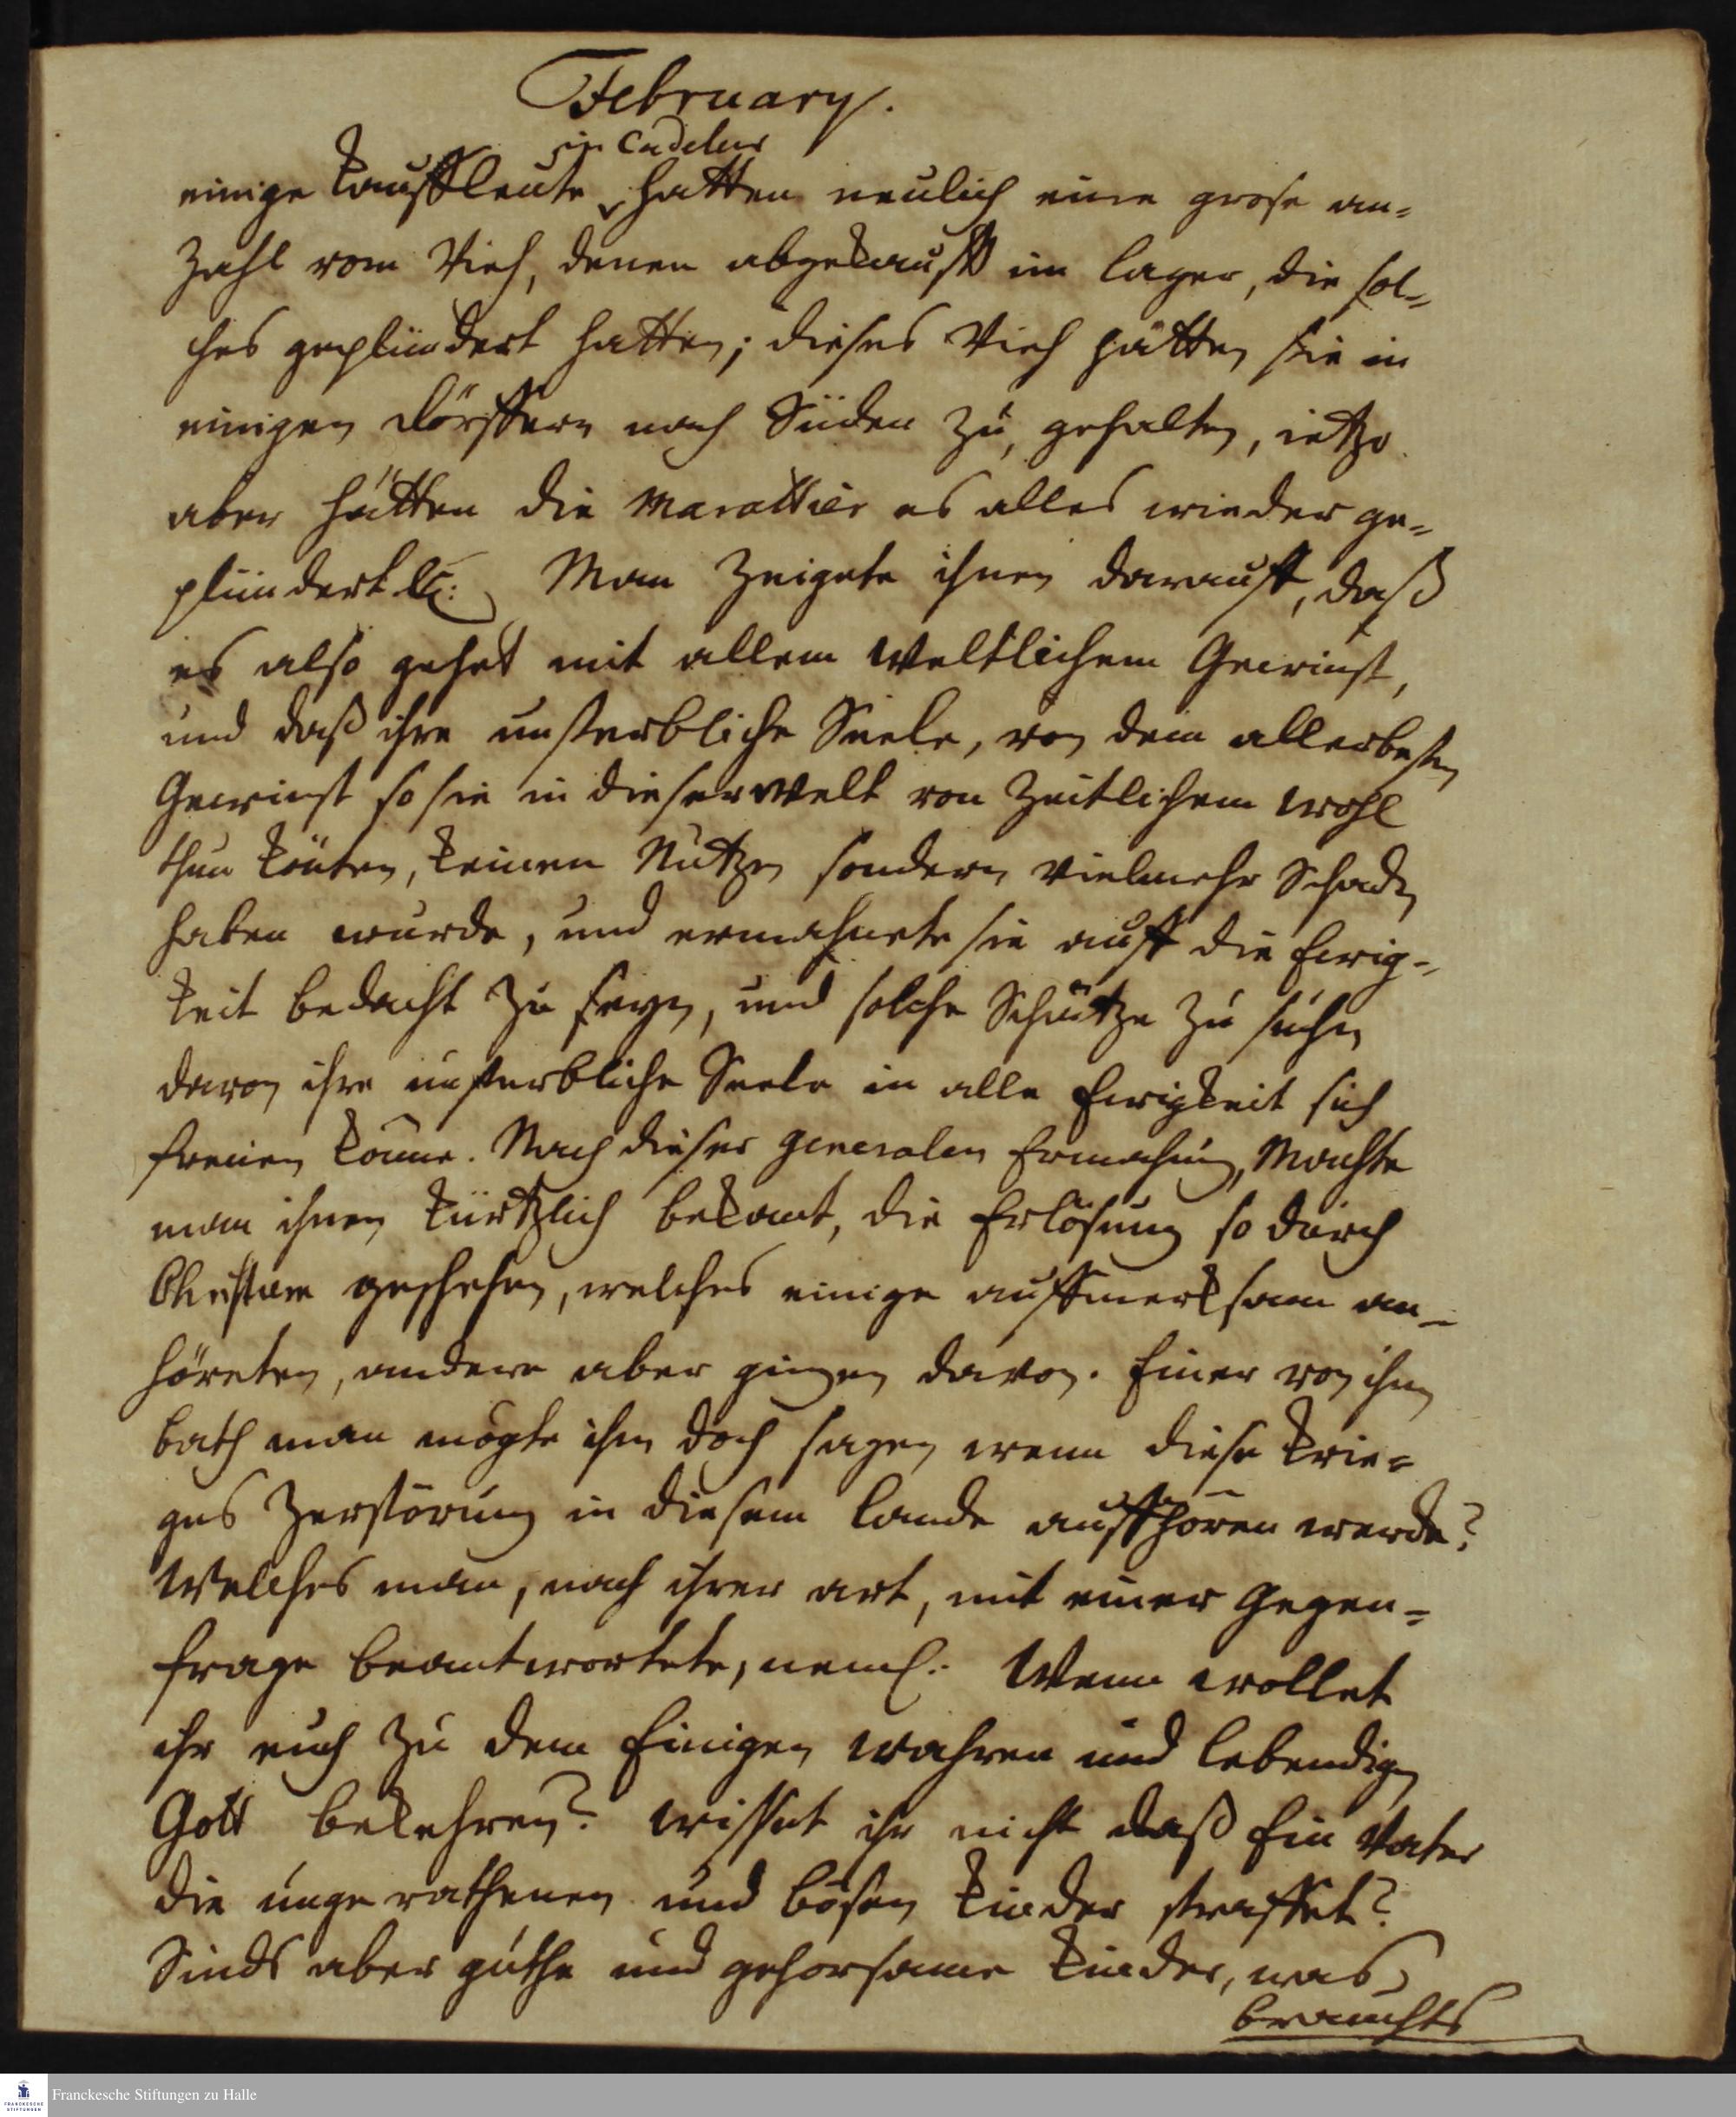 February.
in Cudelur
einige Kauffleute hatten neulich eine grose an-
zahl vom Vieh, denen abgekaufft im Lager, die sol-
ches geplündert hatten; dieses Vieh hätten sie in
einigen Dörffern nach Süden zu, gehalten, ietzo
aber hätten die Marattier es alles wieder ge-
plündert etc: Man zeigete ihnen darauff, daß
es also gehet mit allem Weltlichem Gewinst,
und daß ihre unsterbliche Seele, von dem allerbesten
Gewinst so sie in dieser Welt von zeitlichem wohl
thun könten, keinen Nutzen sondern vielmehr Schaden
haben wurde, und ermahnete sie auff die Ewig-
keit bedacht zu seyn, und solche Schätze zu suchen
davon ihre unsterbliche Seele in alle Ewigkeit sich
freuen könne. Nach dieser generalen Ermahnung, Machte
man ihnen kürtzlich bekant, die Erlösung so durch
Christum geschehen, welches einige auffmerksam an-
höreten, andere aber gingen davon. Einer von ihnen
bath man mögte ihm doch sagen wenn diese Krie-
ges Zerstörung in diesem Lande auffhören werde?
Welches man, nach ihrer art, mit einer Gegen-
frage beantwortete, neml: Wenn wollet
ihr euch zu dem Einigen wahren und lebendigen
Gott bekehren? wisset ihr nicht daß Ein Vater
die ungerathenen und bösen Kinder straffet?
Sinds aber guthe und gehorsame Kinder, was
brauchts
Franckesche Stiftungen zu Halle
FRANCKESCHE
STIFTUNGEN